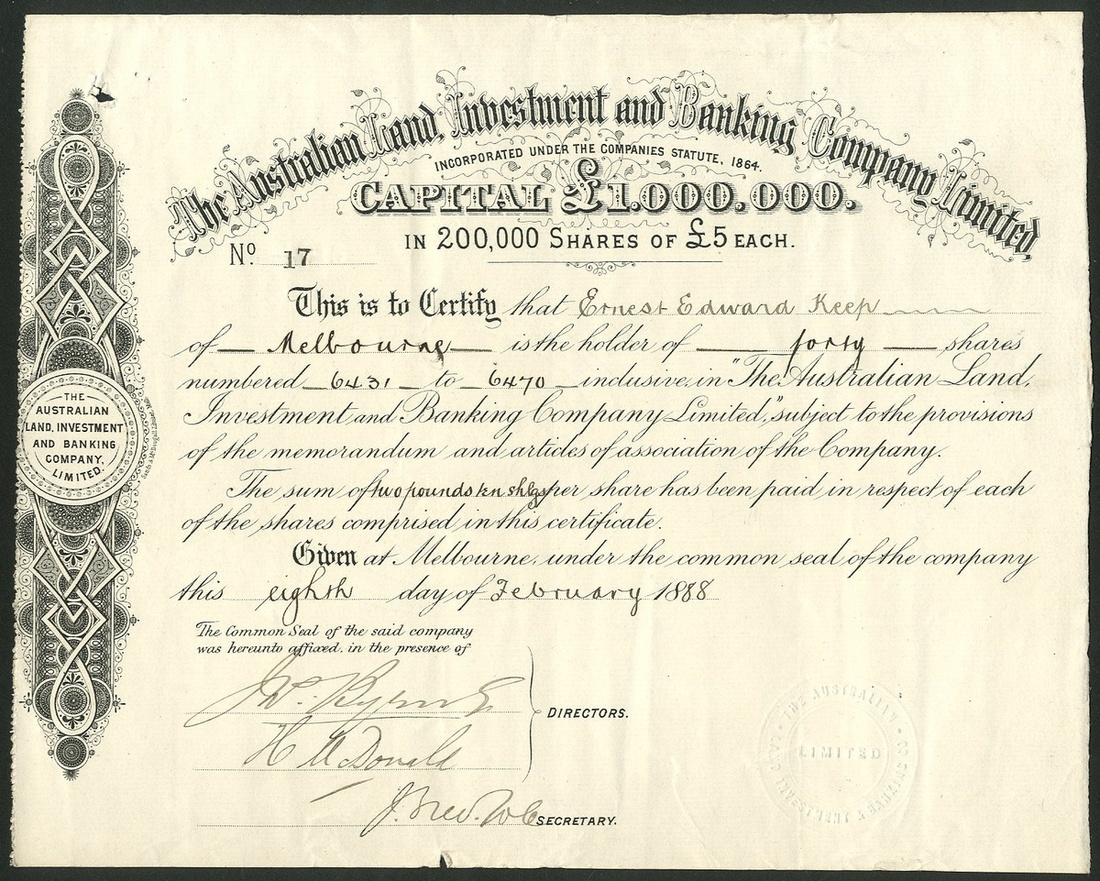 The Australian Land, Investment and Banking Company Limited.
INCORPORATED UNDER THE COMPANIES STATUTE, 1864.
CAPITAL £1.000.000.
IN 200,000 SHARES OF £5 EACH.
No. 17
This is to Certify that Ernest Edward Keep
of Melbourne is the holder of forty shares
numbered 6431 to 6470 inclusive, in "The Australian Land,
Investment and Banking Company Limited," subject to the provisions
of the memorandum and articles of association of the Company.
The sum of two pounds ten shlgs per share has been paid in respect of each
of the shares comprised in this certificate.
Given at Melbourne, under the common seal of the company
this eighth day of February 1888
The Common Seal of the said company
was hereunto affixed, in the presence of
Byrne
DIRECTORS.
H McDonald
SECRETARY.
THE
AUSTRALIAN
LAND, INVESTMENT
AND BANKING
COMPANY,
LIMITED.
THE AUSTRALIAN
LAND INVESTMENT & BANKING CO
LIMITED